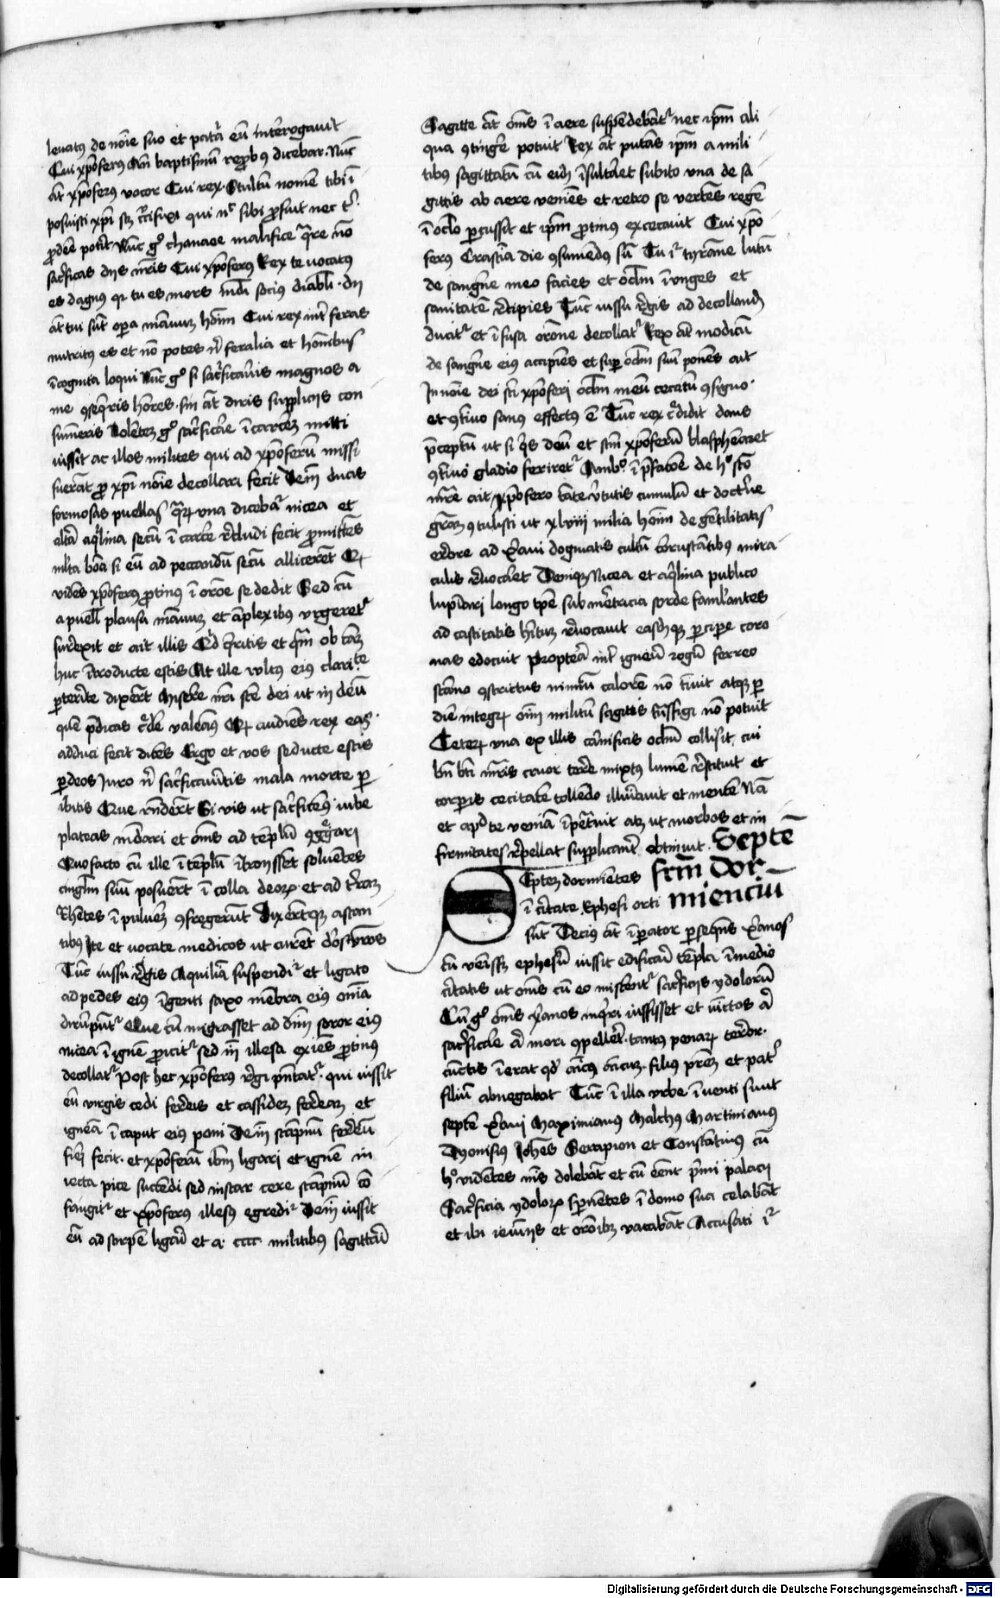 leuatus de noie suo et patria eum interrogauit
Cui xpoferus An baptismum reprobus dicebar Nunc
at xpoferus vocor Cui rex Stultum nomen tibi i
posuisti xpi scz crucifixi qui nec sibi profuit nec t
prodesse poterit Nunc go chananee malefice quare non
sacrificas diis nris Cui xpoferus Rex te vocatus
es dagnus qr tu es mors mdi socius diaboli dii
at tui sunt opera manuum hoim Cui rex inter feras
nutritus es et no potes nisi feralia et hominibus
icognita loqui Nunc go si sacrificaueris magnos a
me consequeris honores sin at diris suppliciis con
sumeris Nolentem go sacrificare i carcerem mitti
iussit ac illos milites qui ad xpoferum missi
fuerat pro xpi noie decollari fecit Deinde duas
formosas puellas quarum vna dicebatur nicea et
altera aqlina secum i carcere recludi fecit promittens
multa bona si eum ad peccandum secum allicerent Qd
videns xpoferus protinus i oroe se dedit Sed cum
a puellis plausu manuum et amplexibus vrgeretur
surrexit et ait illis Qd queritis et quam ob causam
huc introducte estis At ille vultus eius claritate
perterrite dixerunt Miserere nri sce dei ut in deum
quem predicas credere valeamus Qd audiens rex eas
adduci fecit dicens Ergo et vos seducte estis
per deos Iuro nisi sacrificaueritis mala morte per
ibitis Que rnderunt Si vis ut sacrificemus iube
plateas mundari et omes ad templum congregari
Quo facto cum ille i templum itroissent soluentes
cingulum suum posuerunt i colla deorum et ad terram
trahentes i puluerem confregerunt Dixeruntque astan
tibus Ite et vocate medicos ut curent deos vros
Tunc iussu regis Aquilina suspenditur et ligato
ad pedes eius igenti saxo membra eius omnia
dirumpuntur Que cum migrasset ad dnm soror eius
nicea i ignem proicitur sed inde illesa exiens protinus
decollatur Post hec xpoferus regi pntatur qui iussit
eum virgis cedi ferreis et cassidem ferream et
igneam i caput eius poni Deinde scampnum ferreum
fieri fecit et xpoferum ibm ligari et ignem in
iecta pice succendi sed instar cere scampnum con
frangitur et xpoferus illesus egreditur Deinde iussit
eum ad stipitem ligari et a cccc militibus sagittari
Sagitte at omes i aere suspendebantur nec ipm ali
qua contingere potuit Rex at putans ipm a mili
tibus sagittatum cum eidem isultaret subito vna de sa
gittis ab aere veniens et retro se vertens regem
i oculo percussit et ipm protinus excecauit Cui xpo
ferus Crastina die consumendus sum Tu igitur tyranne lutum
de sangne meo facies et oculum inunges et
sanitatem recipies Tunc iussu regis ad decollandum
ducitur et i fusa orone decollatur Rex at modicum
de sangne eius accipiens et super oculum suum ponens ait
In noie dei et sci xpoferi oculum meum cecatum consigno
et continuo sanus effectus e Tunc rex credidit dans
preceptum ut si quis deum et scm xpoferum blasphemaret
continuo gladio feriretur Ambrosius i prefatoe de hoc sco
mre ait xpofero tante virtutis cumulum et doctrine
gram contulisti ut xlviii milia hoim de gentilitatis
errore ad xpiani dogmatis cultum coruscantibus mira
culis reuocaret Deniqz Nicea et aqlina publico
lupanari longo tpe sub meretricia sorde famulantes
ad castitatis habitum reuocauit easdemqz percipere coro
nas edocuit propterea inter igneum rogum ferreo
scamno constrictus nimium calorem non timuit atqz per
diem integrum omi militum sagittis transfigi no potuit
Ceterum vna ex illis carnificis oculum collisit cui
tn bti martiris cruor terre mixtus lumen restituit et
corporis cecitatem tollendo illuminauit et mentem Nam
et apud te veniam impetrauit atqz ut morbos et in
firmitates repellat supplicanter obtinuit Septem
frm dor
miencium
Septem dormientes
i ciuitate Ephesi orti
sunt Decius at imperator persequens xpianos
cum venisset ephesum iussit edificari templa i medio
ciuitatis ut omes cum eo miscentur sacrificiis ydolorum
Cum go omes xpianos inquiri iussisset et vinctos aut
sacrificare aut mori compelleret tantus penarum terror
cunctis inerat qd amicus amicum filius prem et pater
filium abnegabat Tunc i illa vrbe inuenti sunt
septem xpiani Maximianus Malchus Martinianus
Dyonisius Iohes Serapion et Constantinus cum
hoc videntes nimis dolebant et cum essent primi palacii
Sacrificia ydolorum spernentes i domo sua celabant
et ibi ieiuniis et oronibus vacabant Accusati igitur
Digitalisierung gefördert durch die Deutsche Forschungsgemeinschaft - DFG